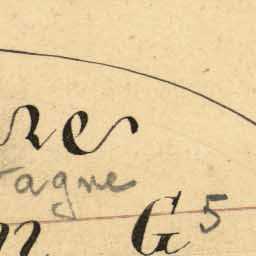 re
tagne
n G5